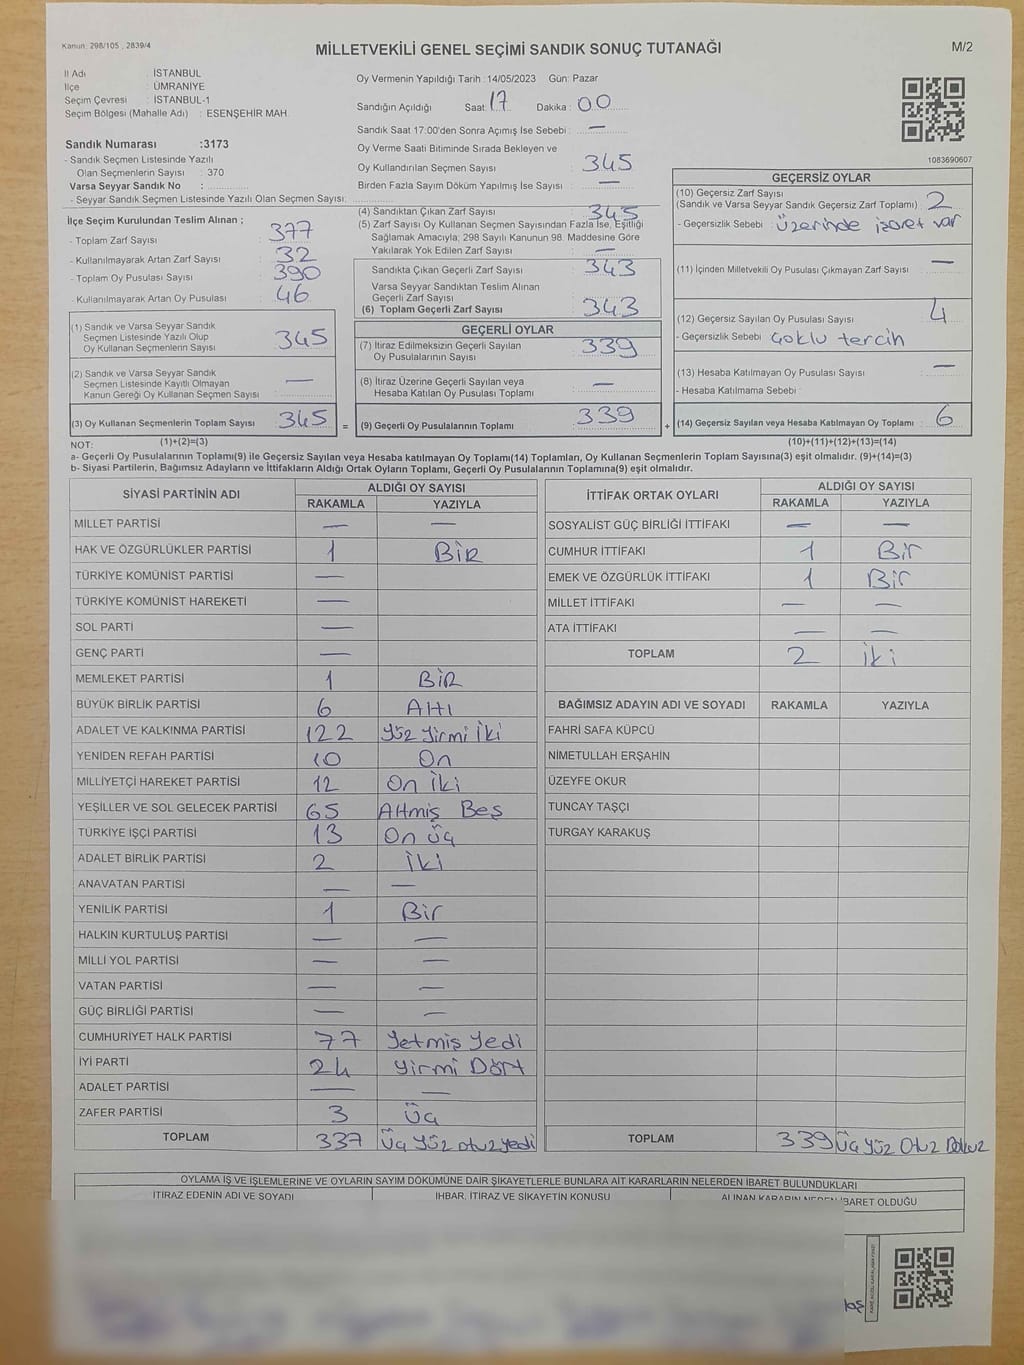 Kanun: 298/105 , 2839/4
MİLLETVEKİLİ GENEL SEÇİMİ SANDIK SONUÇ TUTANAĞI
M/2
İl Adı : İSTANBUL
İlçe : ÜMRANİYE
Seçim Çevresi : İSTANBUL-1
Seçim Bölgesi (Mahalle Adı) : ESENŞEHİR MAH.
Sandık Numarası :3173
- Sandık Seçmen Listesinde Yazılı
Olan Seçmenlerin Sayısı : 370
Varsa Seyyar Sandık No :
- Seyyar Sandık Seçmen Listesinde Yazılı Olan Seçmen Sayısı:
Oy Vermenin Yapıldığı Tarih :14/05/2023 Gün: Pazar
Sandığın Açıldığı Saat: 17 Dakika: 00
Sandık Saat 17:00'den Sonra Açımış İse Sebebi : —
Oy Verme Saati Bitiminde Sırada Bekleyen ve
Oy Kullandırılan Seçmen Sayısı : 345
Birden Fazla Sayım Döküm Yapılmış İse Sayısı : —
1083690607
İlçe Seçim Kurulundan Teslim Alınan ;
- Toplam Zarf Sayısı : 377
- Kullanılmayarak Artan Zarf Sayısı : 32
- Toplam Oy Pusulası Sayısı : 390
- Kullanılmayarak Artan Oy Pusulası : 46
(1) Sandık ve Varsa Seyyar Sandık
Seçmen Listesinde Yazılı Olup
Oy Kullanan Seçmenlerin Sayısı : 345
(2) Sandık ve Varsa Seyyar Sandık
Seçmen Listesinde Kayıtlı Olmayan
Kanun Gereği Oy Kullanan Seçmen Sayısı : —
(3) Oy Kullanan Seçmenlerin Toplam Sayısı : 345 =
(4) Sandıktan Çıkan Zarf Sayısı : 345
(5) Zarf Sayısı Oy Kullanan Seçmen Sayısından Fazla İse, Eşitliği
Sağlamak Amacıyla; 298 Sayılı Kanunun 98. Maddesine Göre
Yakılarak Yok Edilen Zarf Sayısı : —
Sandıkta Çıkan Geçerli Zarf Sayısı : 343
Varsa Seyyar Sandıktan Teslim Alınan
Geçerli Zarf Sayısı
(6) Toplam Geçerli Zarf Sayısı : 343
GEÇERLİ OYLAR
(7) İtiraz Edilmeksizin Geçerli Sayılan
Oy Pusulalarının Sayısı : 339
(8) İtiraz Üzerine Geçerli Sayılan veya
Hesaba Katılan Oy Pusulası Toplamı : —
(9) Geçerli Oy Pusulalarının Toplamı : 339 +
GEÇERSİZ OYLAR
(10) Geçersiz Zarf Sayısı
(Sandık ve Varsa Seyyar Sandık Geçersiz Zarf Toplamı) : 2
- Geçersizlik Sebebi : üzerinde işaret var
(11) İçinden Milletvekili Oy Pusulası Çıkmayan Zarf Sayısı : —
(12) Geçersiz Sayılan Oy Pusulası Sayısı : 4
- Geçersizlik Sebebi : çoklu tercih
(13) Hesaba Katılmayan Oy Pusulası Sayısı : —
- Hesaba Katılmama Sebebi :
(14) Geçersiz Sayılan veya Hesaba Katılmayan Oy Toplamı : 6
NOT: (1)+(2)=(3)
(10)+(11)+(12)+(13)=(14)
a- Geçerli Oy Pusulalarının Toplamı(9) ile Geçersiz Sayılan veya Hesaba katılmayan Oy Toplamı(14) Toplamları, Oy Kullanan Seçmenlerin Toplam Sayısına(3) eşit olmalıdır. (9)+(14)=(3)
b- Siyasi Partilerin, Bağımsız Adayların ve İttifakların Aldığı Ortak Oyların Toplamı, Geçerli Oy Pusulalarının Toplamına(9) eşit olmalıdır.
SİYASİ PARTİNİN ADI ALDIĞI OY SAYISI
RAKAMLA YAZIYLA
MİLLET PARTİSİ — —
HAK VE ÖZGÜRLÜKLER PARTİSİ 1 BİR
TÜRKİYE KOMÜNİST PARTİSİ —
TÜRKİYE KOMÜNİST HAREKETİ —
SOL PARTİ —
GENÇ PARTİ —
MEMLEKET PARTİSİ 1 BİR
BÜYÜK BİRLİK PARTİSİ 6 Altı
ADALET VE KALKINMA PARTİSİ 122 Yüz Yirmi İki
YENİDEN REFAH PARTİSİ 10 On
MİLLİYETÇİ HAREKET PARTİSİ 12 On İki
YEŞİLLER VE SOL GELECEK PARTİSİ 65 Altmış Beş
TÜRKİYE İŞÇİ PARTİSİ 13 On üç
ADALET BİRLİK PARTİSİ 2 İki
ANAVATAN PARTİSİ — —
YENİLİK PARTİSİ 1 Bir
HALKIN KURTULUŞ PARTİSİ — —
MİLLİ YOL PARTİSİ — —
VATAN PARTİSİ — —
GÜÇ BİRLİĞİ PARTİSİ — —
CUMHURİYET HALK PARTİSİ 77 Yetmiş Yedi
İYİ PARTİ 24 Yirmi Dört
ADALET PARTİSİ — —
ZAFER PARTİSİ 3 Üç
TOPLAM 337 Üç Yüz otuz yedi
İTTİFAK ORTAK OYLARI ALDIĞI OY SAYISI
RAKAMLA YAZIYLA
SOSYALİST GÜÇ BİRLİĞİ İTTİFAKI — —
CUMHUR İTTİFAKI 1 Bir
EMEK VE ÖZGÜRLÜK İTTİFAKI 1 Bir
MİLLET İTTİFAKI — —
ATA İTTİFAKI — —
TOPLAM 2 İki
BAĞIMSIZ ADAYIN ADI VE SOYADI RAKAMLA YAZIYLA
FAHRİ SAFA KÜPCÜ
NİMETULLAH ERŞAHİN
ÜZEYFE OKUR
TUNCAY TAŞÇI
TURGAY KARAKUŞ
TOPLAM 339 Üç Yüz Otuz Dokuz
OYLAMA İŞ VE İŞLEMLERİNE VE OYLARIN SAYIM DÖKÜMÜNE DAİR ŞİKAYETLERLE BUNLARA AİT KARARLARIN NELERDEN İBARET BULUNDUKLARI
İTİRAZ EDENİN ADI VE SOYADI İHBAR, İTİRAZ VE ŞİKAYETİN KONUSU ALINAN KARARIN NEDEN İBARET OLDUĞU